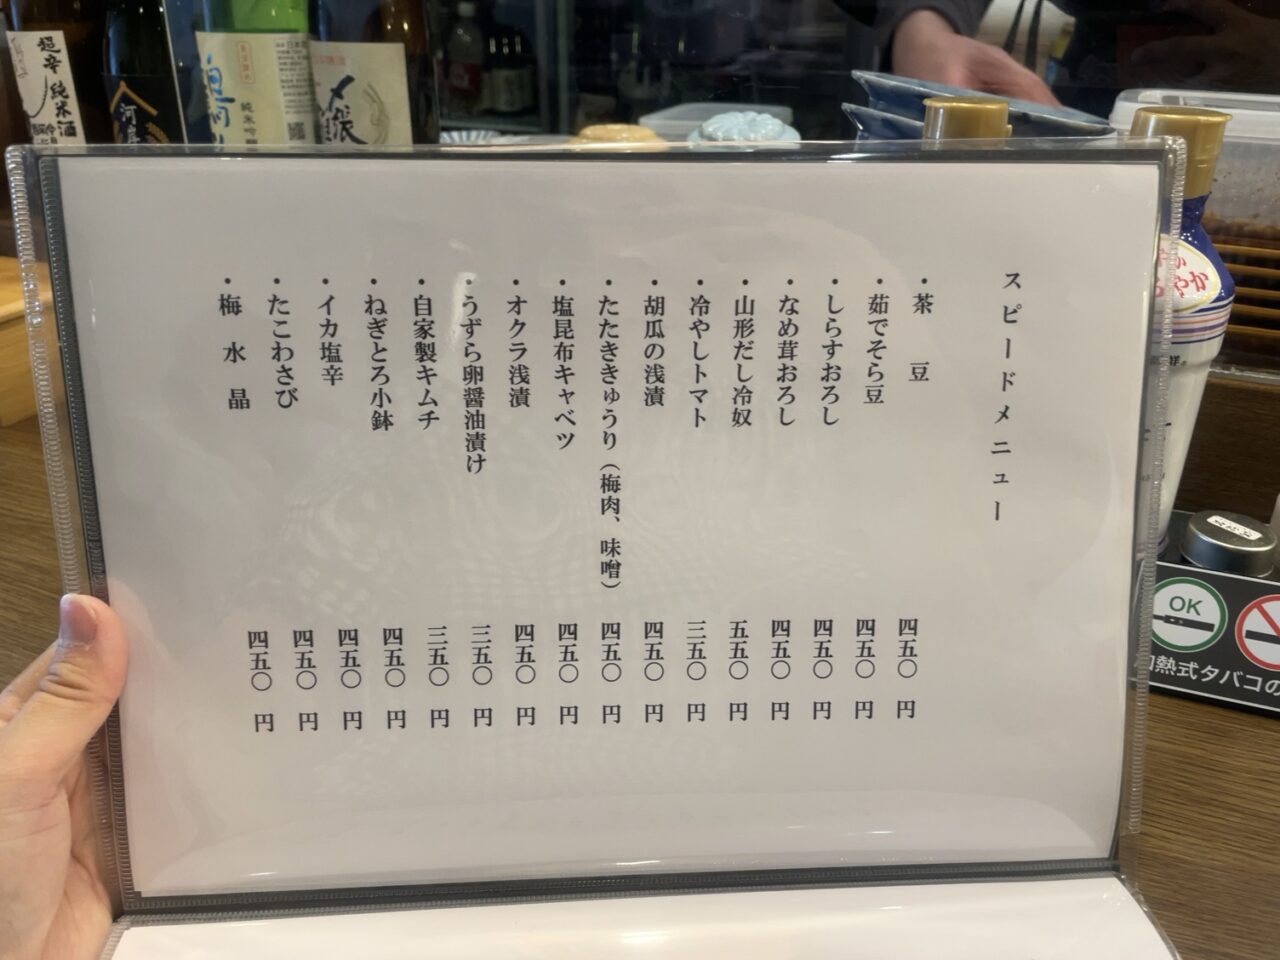 スピードメニュー
・茶 豆 四五〇 円
・茹でそら豆 四五〇 円
・しらすおろし 四五〇 円
・なめ茸おろし 四五〇 円
・山形だし冷奴 五五〇 円
・冷やしトマト 三五〇 円
・胡瓜の浅漬 四五〇 円
・たたききゅうり（梅肉、味噌） 四五〇 円
・塩昆布キャベツ 四五〇 円
・オクラ浅漬 四五〇 円
・うずら卵醤油漬け 三五〇 円
・自家製キムチ 三五〇 円
・ねぎとろ小鉢 四五〇 円
・イカ塩辛 四五〇 円
・たこわさび 四五〇 円
・梅 水 晶 四五〇 円
超辛純米酒
純米吟
〆張
OK
熱式タバコの